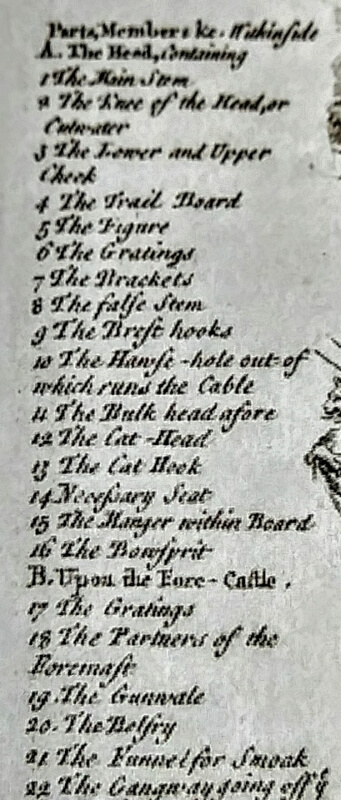 Parts, Members &c. Withinſide
A. The Head, Containing
1 The Main Stem
2 The Knee of the Head, or
Cutwater
3 The Lower and Upper
Cheek
4 The Trail Board
5 The Figure
6 The Gratings
7 The Brackets
8 The falſe Stem
9 The Breſt hooks
10 The Hawſe-hole out of
which runs the Cable
11 The Bulk head afore
12 The Cat-Head
13 The Cat Hook
14 Neceſsary Seat
15 The Manger within Board
16 The Bowſprit
B. Upon the Fore-Castle.
17 The Gratings
18 The Partners of the
Foremaſt
19. The Gunwale
20. The Belfry
21 The Funnel for Smoak
22 The Gangway going off yͤ